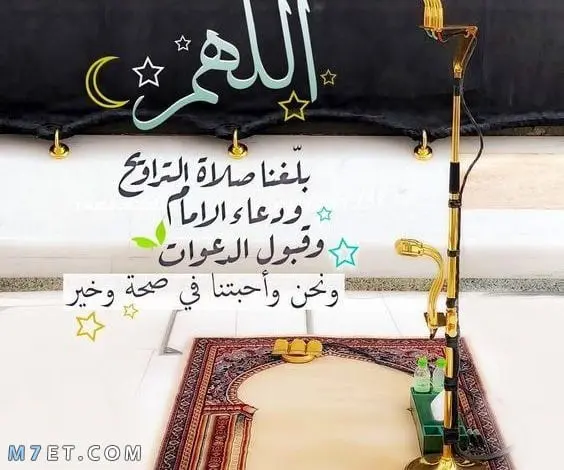 اللهم
بلّغنا صلاة التراويح
ودعاء الامام
وقبول الدعوات
ونحن وأحبتنا في صحة وخير
M7ET.COM